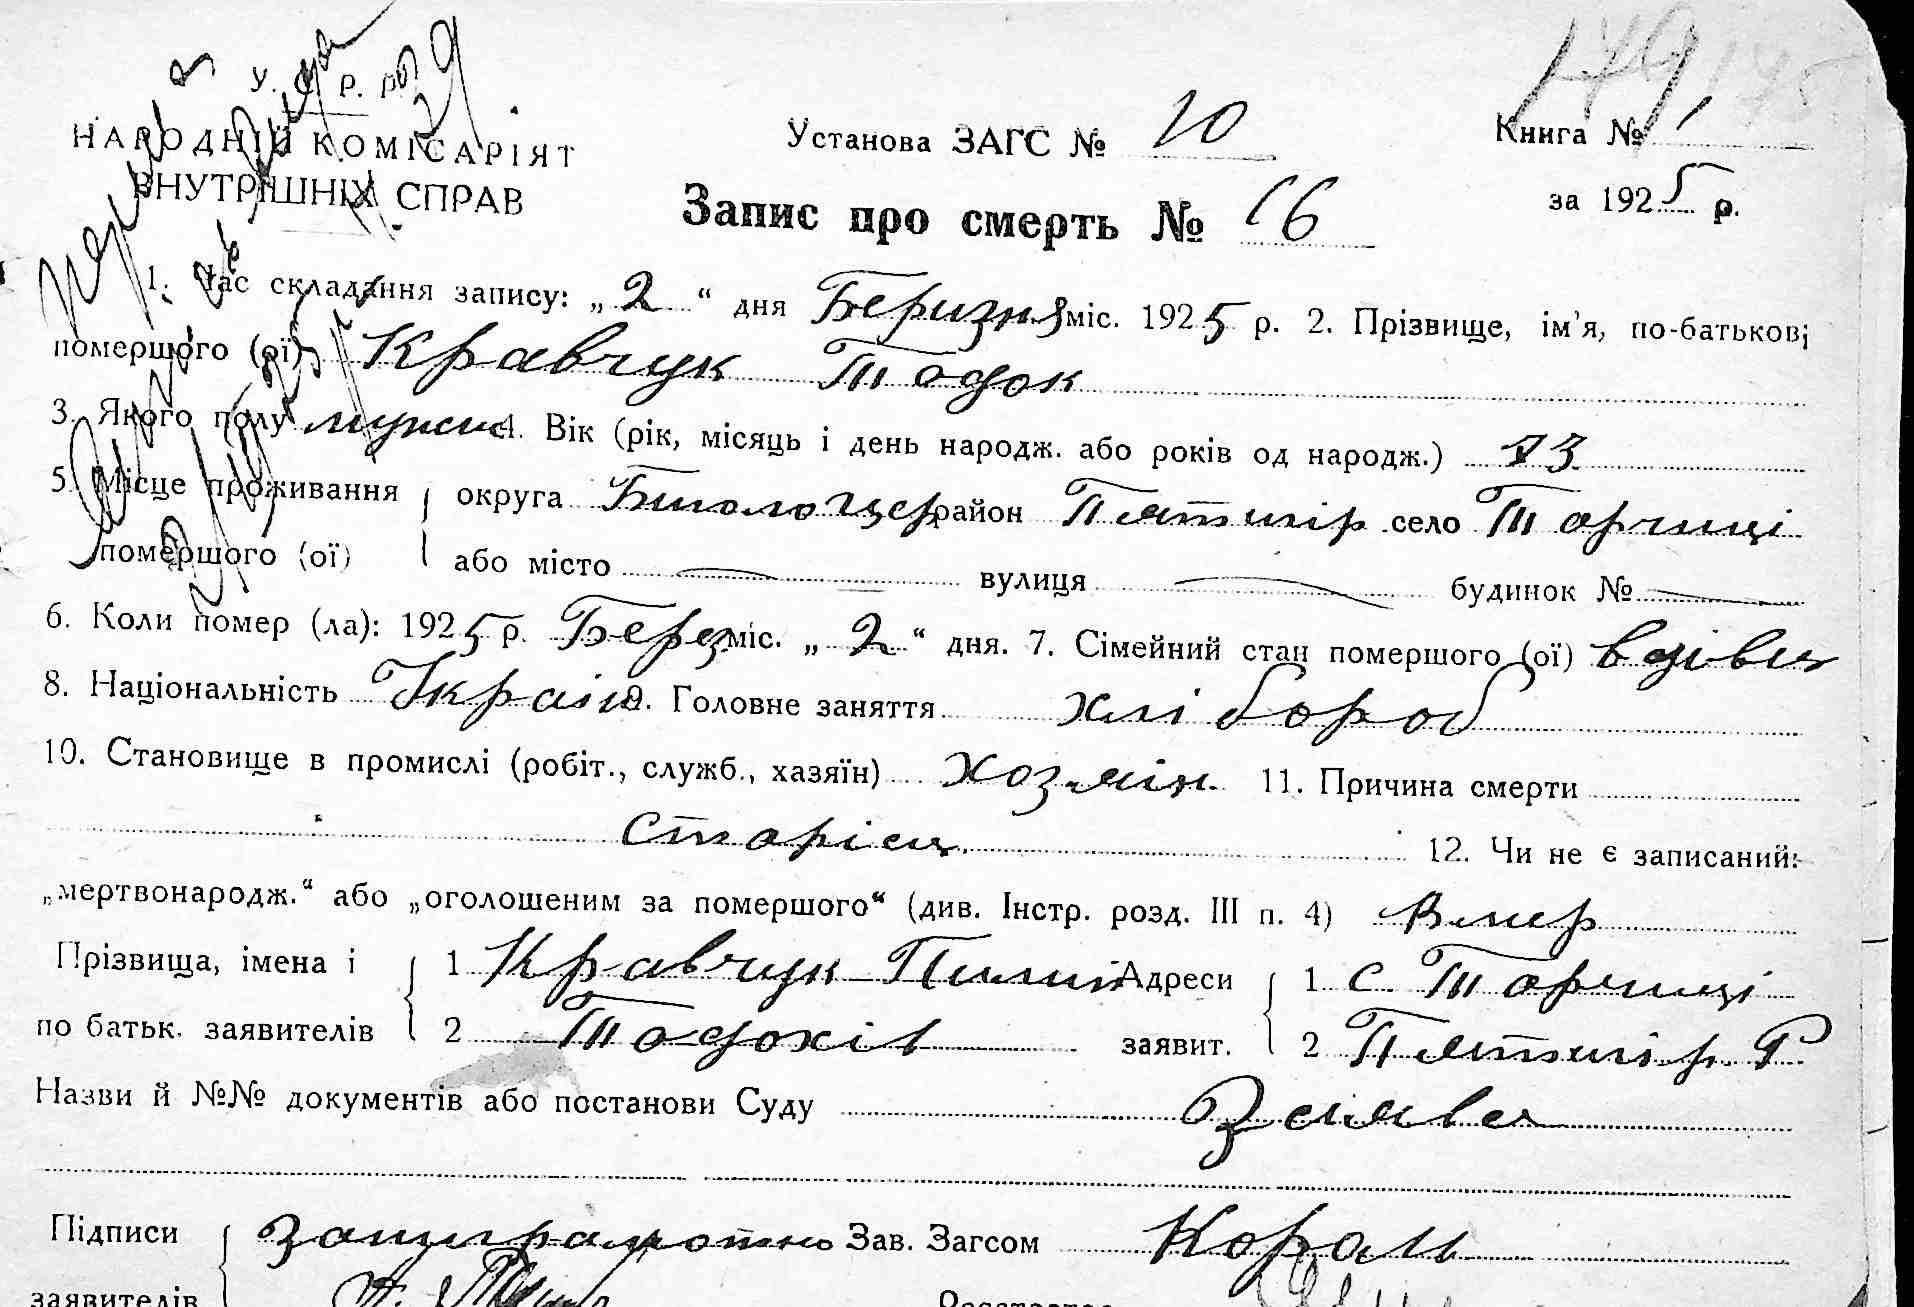 У. С. Р. Р.
НАРОДНІЙ КОМІСАРІЯТ
ВНУТРІШНІХ СПРАВ
Установа ЗАГС № 10
Книга № 1
за 1925 р.
Запис про смерть № 16
1. Час складання запису: „2“ дня Беризня міс. 1925 р. 2. Прізвище, ім'я, по-батькові
помершого (ої) Кравчук Тодок
3. Якого полу мужс 4. Вік (рік, місяць і день народж. або років од народж.) 73
5. Місце проживання округа Билоцер район Пятигір село Торчиці
помершого (ої) або місто вулиця будинок №
6. Коли помер (ла): 1925 р. Берез міс. „2“ дня. 7. Сімейний стан помершого (ої) вдівец
8. Національність Украін 9. Головне заняття хлібороб
10. Становище в промислі (робіт., служб., хазяїн) хозяін 11. Причина смерти
старіец 12. Чи не є записаний:
„мертвонародж.“ або „оголошеним за помершого“ (див. Інстр. розд. III п. 4) Вмер
Прізвища, імена і 1 Кравчук Пилип Адреси 1 с. Торчиці
по батьк. заявителів 2 Тодохів заявит. 2 Пятигір. Р
Назви й №№ документів або постанови Суду Заявка
Підписи Зав. Загсом Король
заявителів